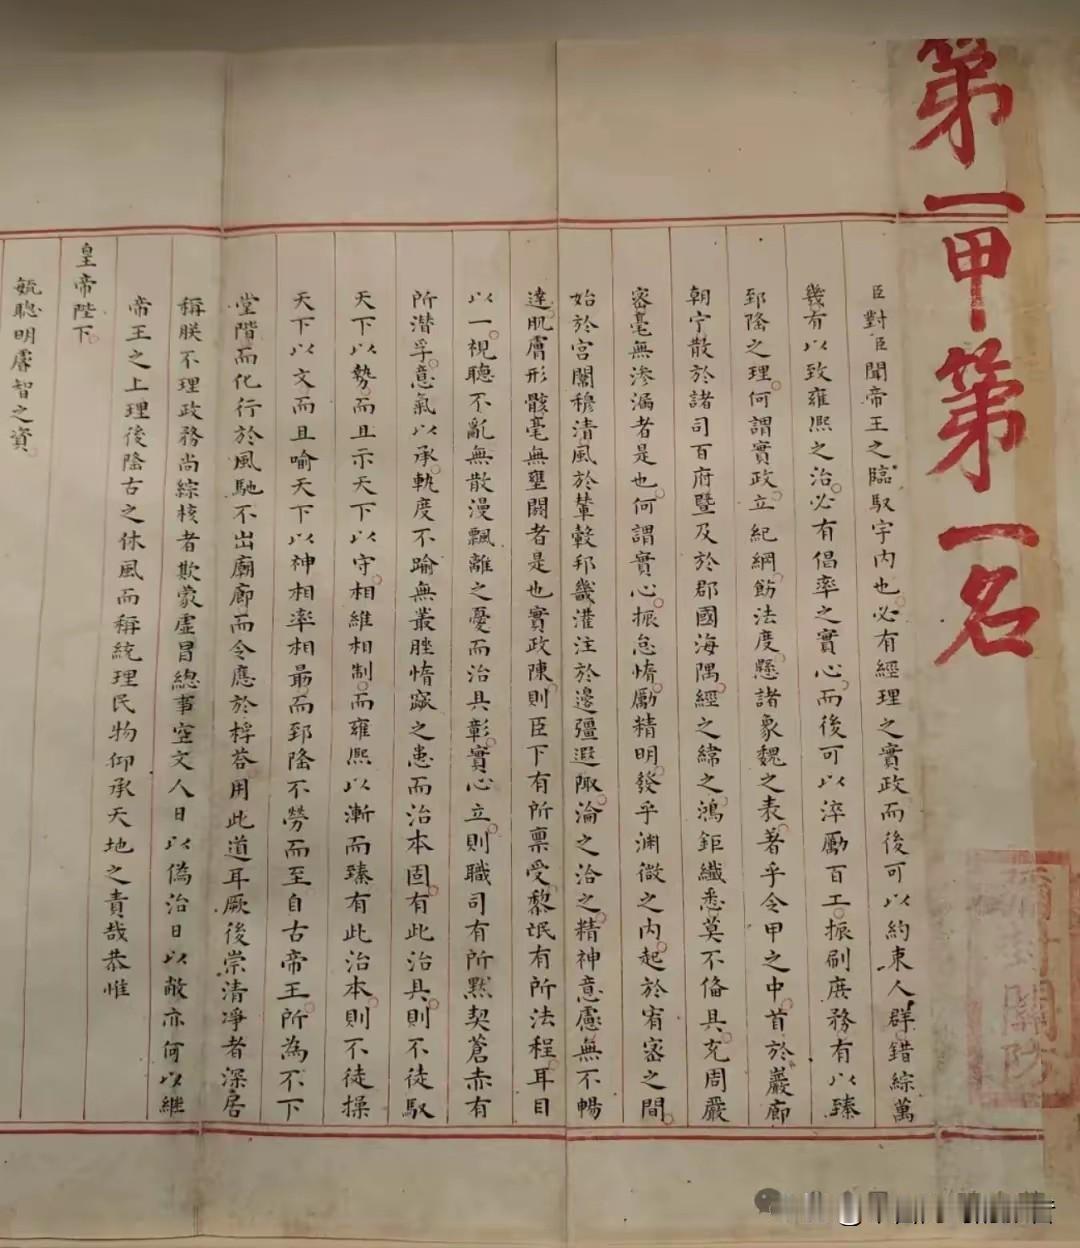 第一甲第一名
臣對臣聞帝王之臨馭宇內也必有經理之實政而後可以約束人群錯綜萬
幾有以致雍熙之治必有倡率之實心而後可以淬勵百工振刷庶務有以臻
郅隆之理何謂實政立紀綱飭法度懸諸象魏之表著乎令甲之中首於巖廊
朝宁散於諸司百府暨及於郡國海隅經之緯之鴻鉅纖悉莫不備具充周嚴
密毫無滲漏者是也何謂實心振怠惰勵精明發乎淵微之內起於宥密之間
始於宮闈穆清風於輦轂邦畿灌注於邊疆遐陬淪之洽之精神意慮無不暢
達肌膚形骸毫無壅閼者是也實政陳則臣下有所禀受黎氓有所法程耳目
以一視聽不亂無散漫飄離之憂而治具彰實心立則職司有所默契蒼赤有
所潛孚意氣以承軌度不踰無叢脞惰窳之患而治本固有此治具則不徒馭
天下以勢而且示天下以守相維相制而雍熙以漸而臻有此治本則不徒操
天下以文而且喻天下以神相率相最而郅隆不勞而至自古帝王所為不下
堂階而化行於風馳不出廟廊而令應於桴荅用此道耳厥後崇清凈者深居
稱朕不理政務尚綜核者欺蒙虛冒總事空文人日以偽治日以敝亦何以繼
帝王之上理後隆古之休風而稱統理民物仰承天地之責哉恭惟
皇帝陛下
毓聰明睿智之資